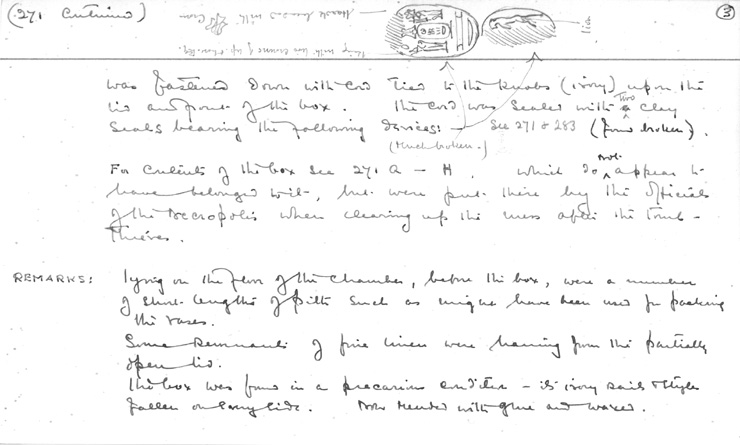 (271 Continued)
③
lid
was fastened down with cord tied to the knobs (ivory) upon the
lid and front of the box. The cord was sealed with two clay
seals bearing the following devices: — See 271 & 283 (found broken).
(Much broken.)
For contents of the box see 271 A – H, which do not appear to
have belonged with, but were put there by the officials
of the Necropolis when clearing up the mess after the tomb-
thieves.
REMARKS: Lying on the floor of the chamber, before the box, were a number
of short lengths of pith such as might have been used for packing
the vases.
Some remnants of fine linen were hanging from the partially
open lid.
The box was found in a precarious condition – its ivory rails & styles
fallen on one side. Now mended with glue and waxed.